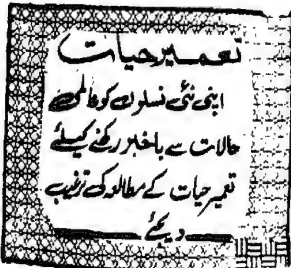 تعمیر حیات
اپنی نئی نسلوں کو عالمی
حالات سے باخبر رکھنے کیلئے
تعمیر حیات کے مطالعہ کی ترغیب
دیجئے